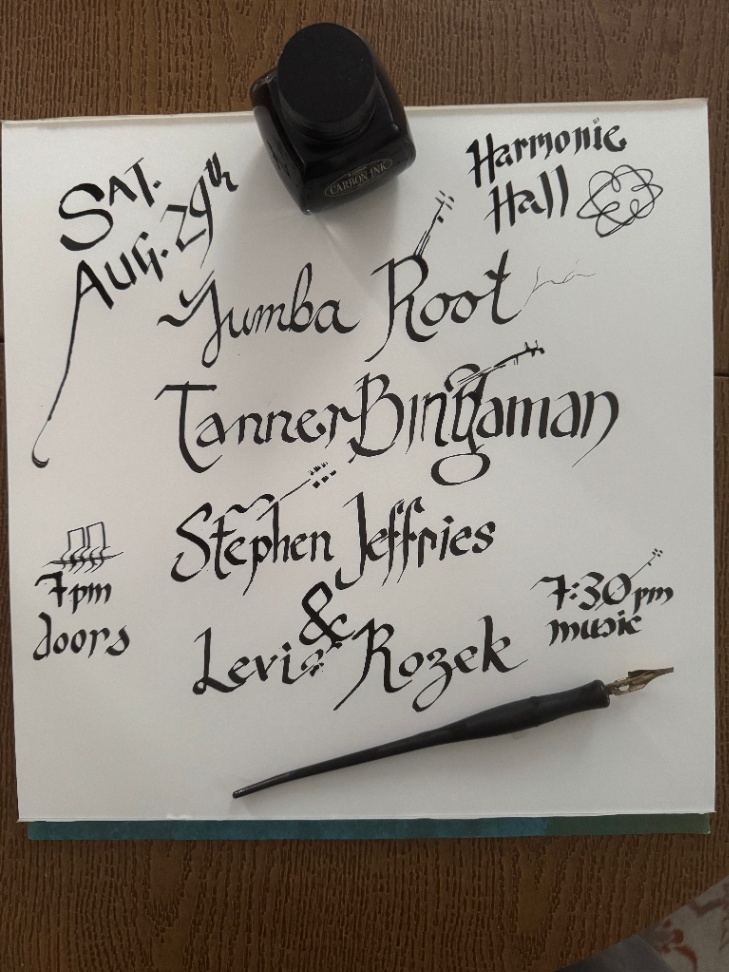 SAT.
AUG. 29th
Harmonie
Hall
CARBON INK
Yumba Root
Tanner Bingaman
Stephen Jeffries
&
Levi Rozek
7pm
doors
7:30pm
music